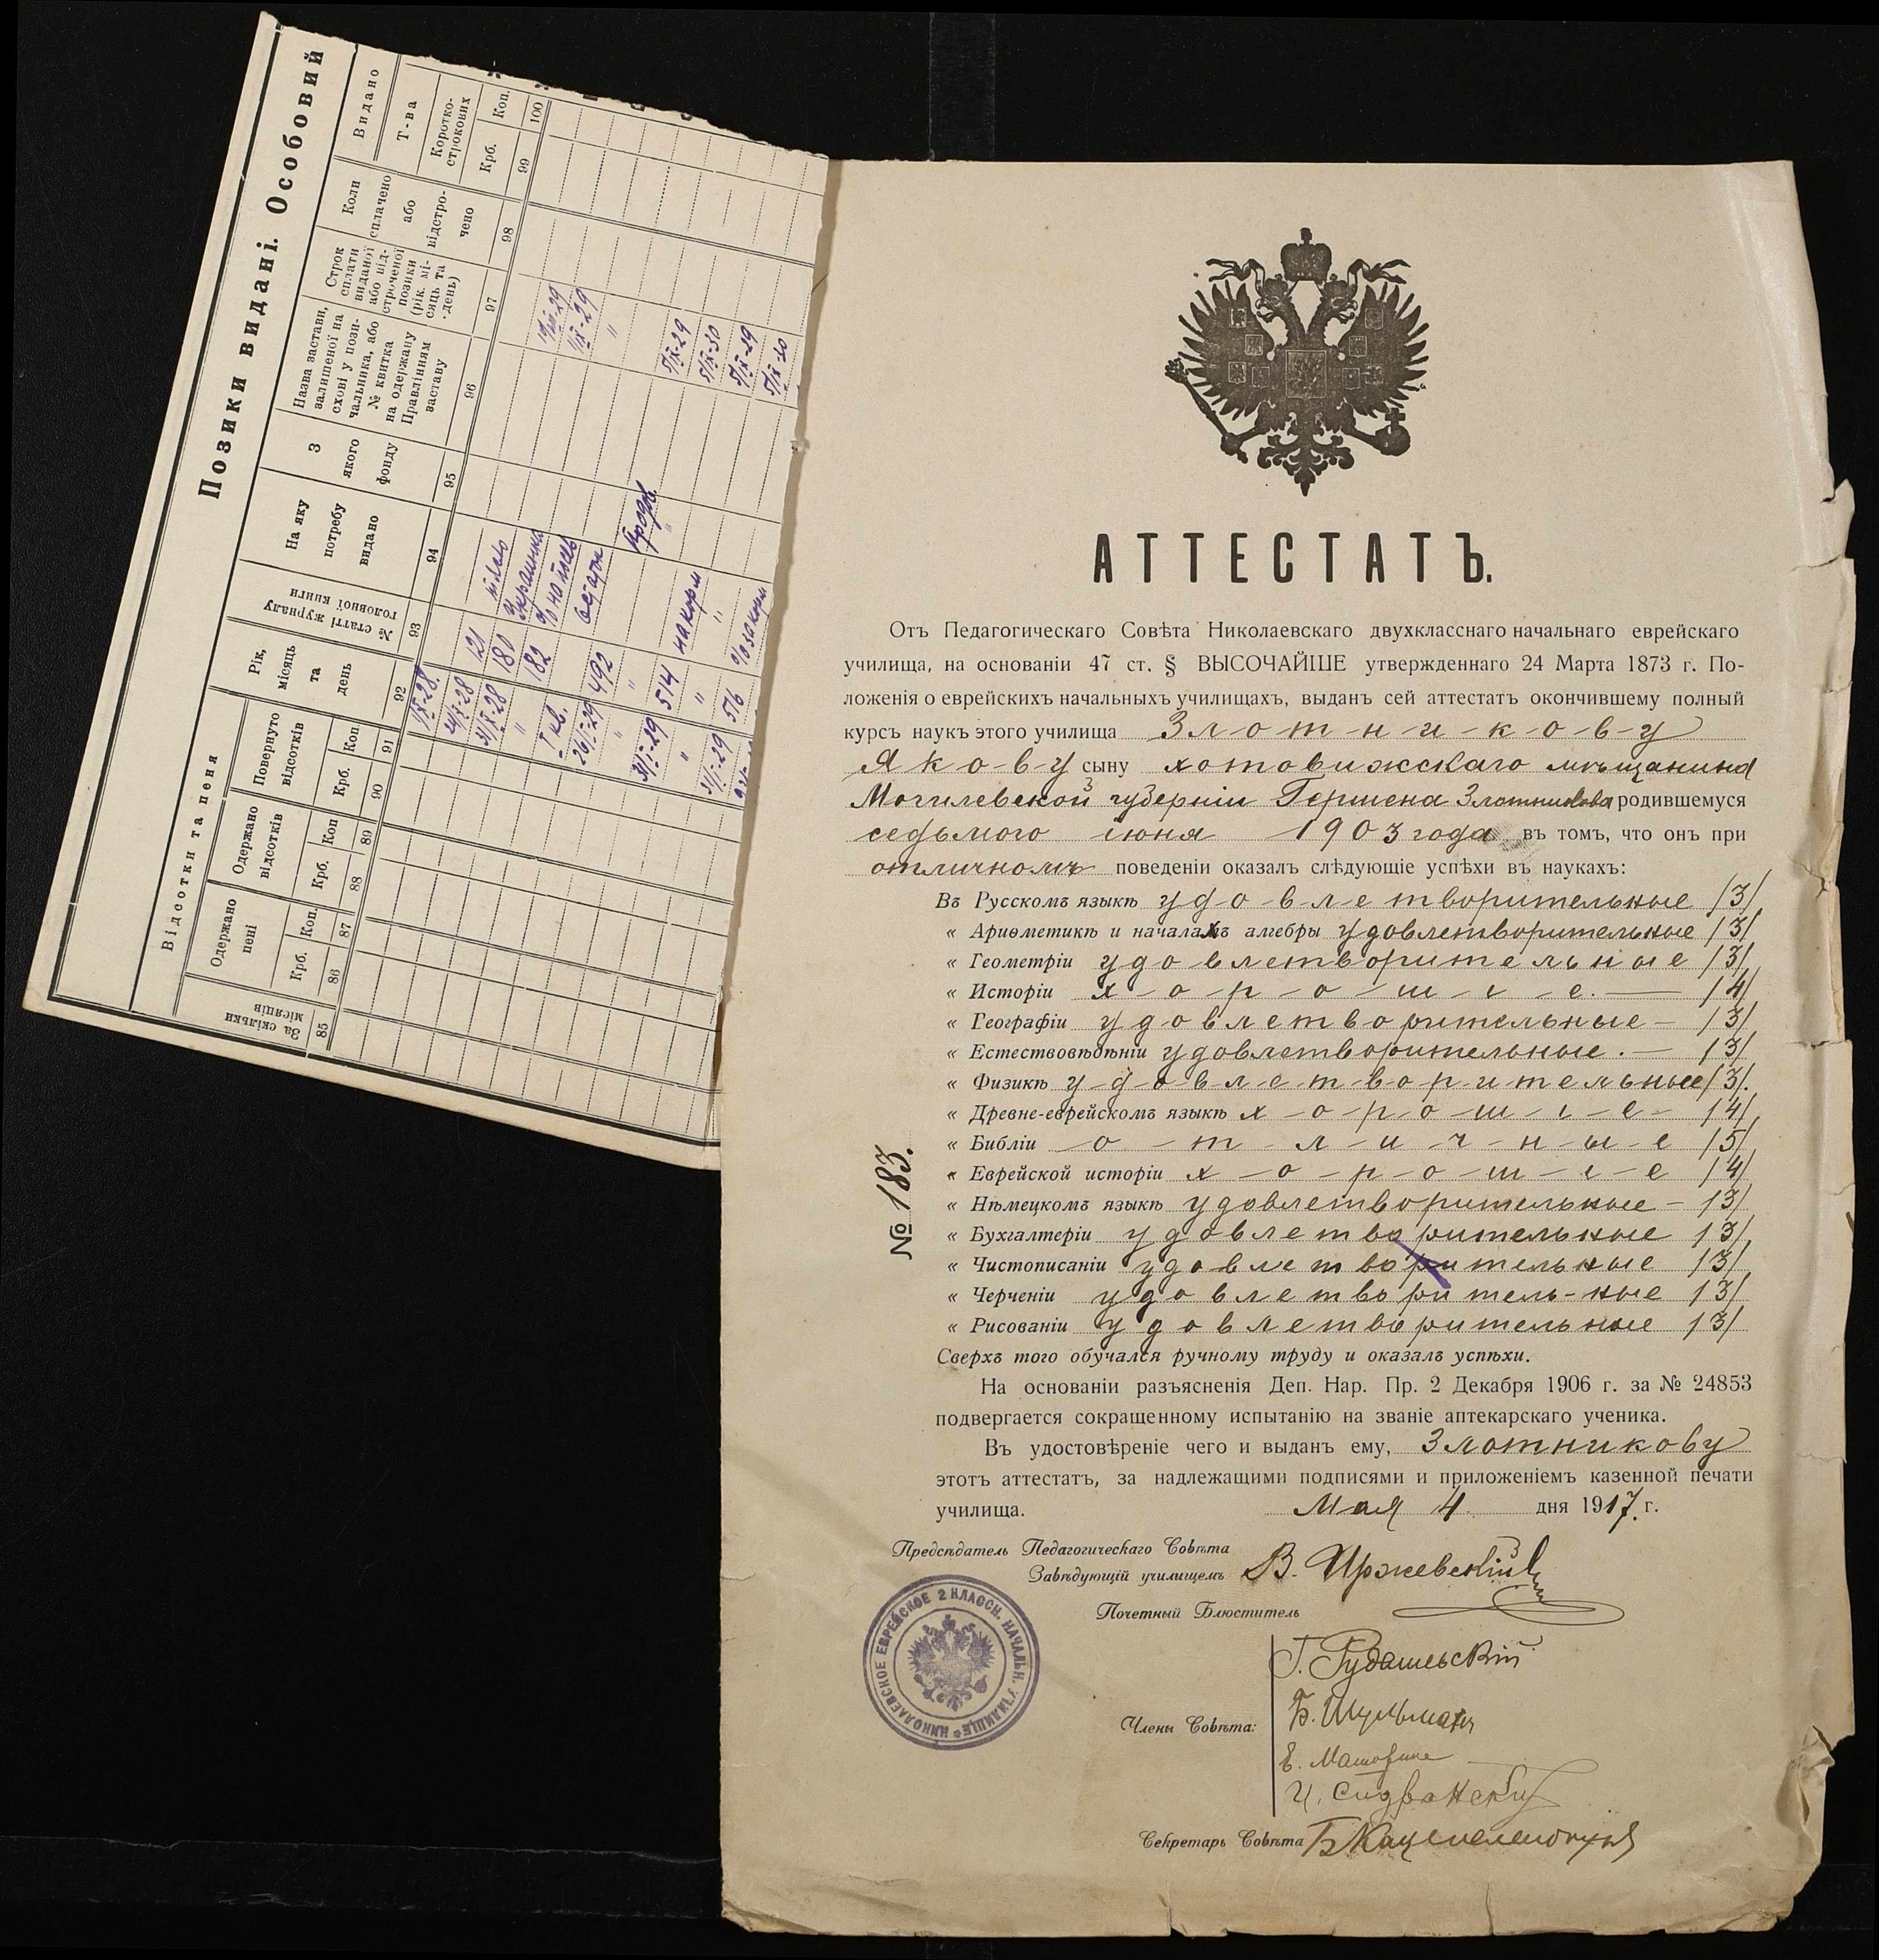 Позики видані. Особовий
Відсотки та пеня
Видано
За скільки місяців
Одержано пені
Одержано відсотків
Повернуто відсотків
Рік, місяць та день
№ статті журналу головної книги
На яку потребу видано
З якого фонду
Назва застави, залишеної на схові у позичальника, або № квитка на одержану Правлінням заставу
Строк сплати виданої або відстроченої позики (рік. місяць та день)
Коли сплачено або відстрочено
Т-ва
Коротко-строкових
Крб. Коп. Крб. Коп Крб. Коп Крб. Коп.
85 86 87 88 89 90 91 92 93 94 95 96 97 98 99 100
1/IX-28.
121
31/IX-28 180 Украинка
" 182
I кв.
26/I-29 492
" "
31/I-29 514 на корм
" " "
31/I-29 516
1/IX-29
"
5/IX-29
5/IX-30
5/IX-29
5/IX-30
АТТЕСТАТЪ.
Отъ Педагогическаго Совѣта Николаевскаго двухкласснаго начальнаго еврейскаго
училища, на основаніи 47 ст. § ВЫСОЧАЙШЕ утвержденнаго 24 Марта 1873 г. По-
ложенія о еврейскихъ начальныхъ училищахъ, выданъ сей аттестатъ окончившему полный
курсъ наукъ этого училища З-л-о-т-н-и-к-о-в-у
Я к о-в-у сыну хотовижскаго мѣщанина
Могилевской губерніи Гершена Златникова родившемуся
седьмого іюня 1903 года въ томъ, что онъ при
отличномъ поведеніи оказалъ слѣдующіе успѣхи въ наукахъ:
Въ Русскомъ языкѣ у-д-о-в-л-е творительные /3/
« Ариѳметикѣ и началахъ алгебры удовлетворительные /3/
« Геометріи удовлетворительные /3/
« Исторіи х-о-р-о-ш-і-е. — /4/
« Географіи удовлетворительные — /3/
« Естествовѣдѣніи удовлетворительные. — /3/
« Физикѣ у-д-о-в-л-е-т-в-о-р-и-т-е-льные /3/.
« Древне-еврейскомъ языкѣ х-о-р-о-ш-і-е- /4/
« Библіи о-т-л-и-ч-н-ы-е /5/
« Еврейской исторіи х-о-р-о-ш-і-е /4/
« Нѣмецкомъ языкѣ удовлетворительные — /3/
« Бухгалтеріи удовлетворительные /3/
« Чистописаніи удовлетворительные /3/
« Черченіи удовлетворитель-ные /3/
« Рисованіи удовлетворительные /3/
Сверхъ того обучался ручному труду и оказалъ успѣхи.
№ 183.
На основаніи разъясненія Деп. Нар. Пр. 2 Декабря 1906 г. за № 24853
подвергается сокращенному испытанію на званіе аптекарскаго ученика.
Въ удостовѣреніе чего и выданъ ему, Злотникову
этотъ аттестатъ, за надлежащими подписями и приложеніемъ казенной печати
училища. Мая 4 дня 1917. г.
Предсѣдатель Педагогическаго Совѣта
Завѣдующій училищемъ В. Иржевскій
Почетный Блюститель
НИКОЛАЕВСКОЕ ЕВРЕЙСКОЕ 2 КЛАССН. НАЧАЛЬН. УЧИЛИЩЕ
Г. Рудашевскій
Б. Шульманъ
Члены Совѣта:
Секретарь Совѣта